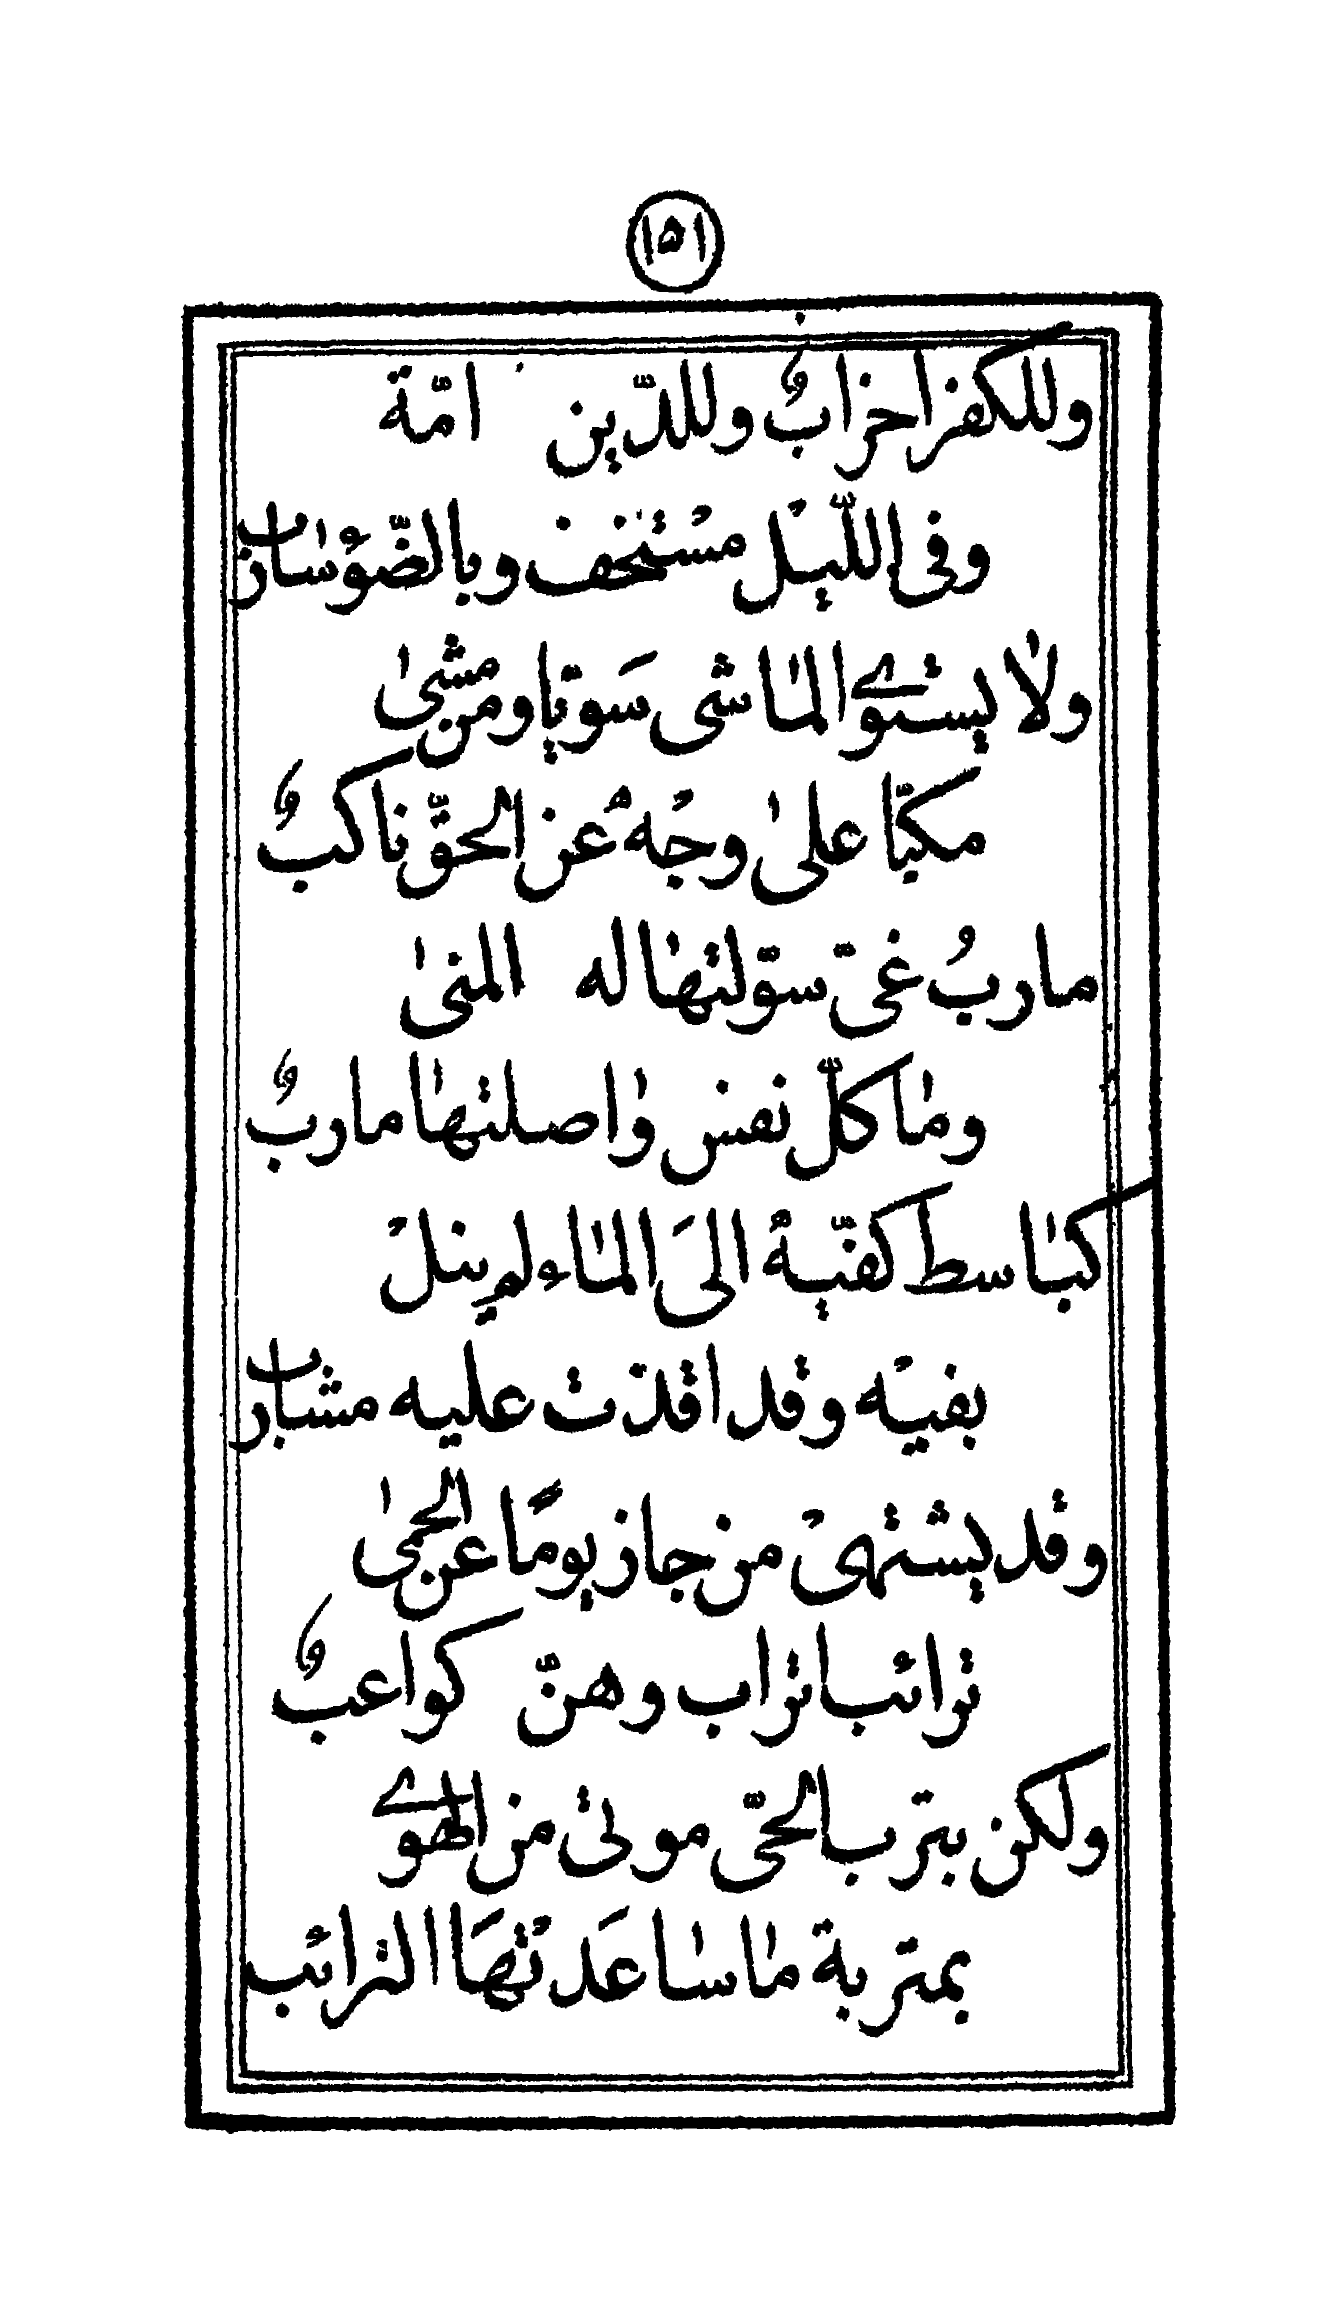 ١٥١
وللكفر احزابٌ وللدّين امّة
وفى اللّيْل مسْتخف وبالضّوْء سارب
ولا يستوے الماشى سَويّا ومن مشىٰ
مكبّا علىٰ وجْههٖ عن الحقّ ناكبٌ
ماربُ غىّ سوّلتها له المنىٰ
وما كلّ نفس واصلتها ماربٌ
كباسط كفّيهْ الىَ الماء لم ينلْ
بفيْه وقد اقذت عليه مشارب
وقد يشتهىْ من جاز يومًا عن الحمىٰ
ترائب اتراب وهنّ كواعبٌ
ولكن بترب الحىّ موتى من الهوے
بمتربة ما ساعَدتْهَا الترائب